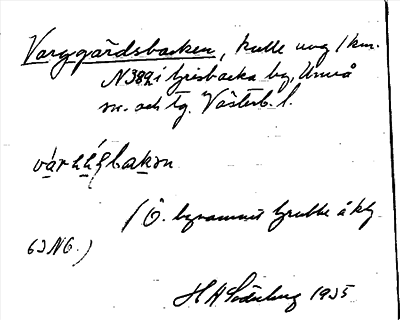 Varggärdsbacken, kulle ung 1 km.
N 382 i Grisbacka by, Umeå
sn. och tg. Västerb. l.
(Ö. byramnet Grubbe å kbl
63 N6.)
H A Söderberg 1935